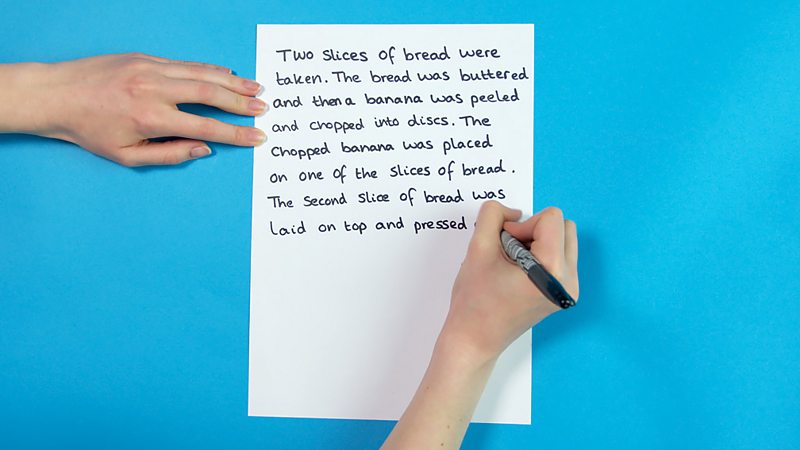 Two slices of bread were
taken. The bread was buttered
and then a banana was peeled
and chopped into discs. The
chopped banana was placed
on one of the slices of bread.
The second slice of bread was
laid on top and pressed